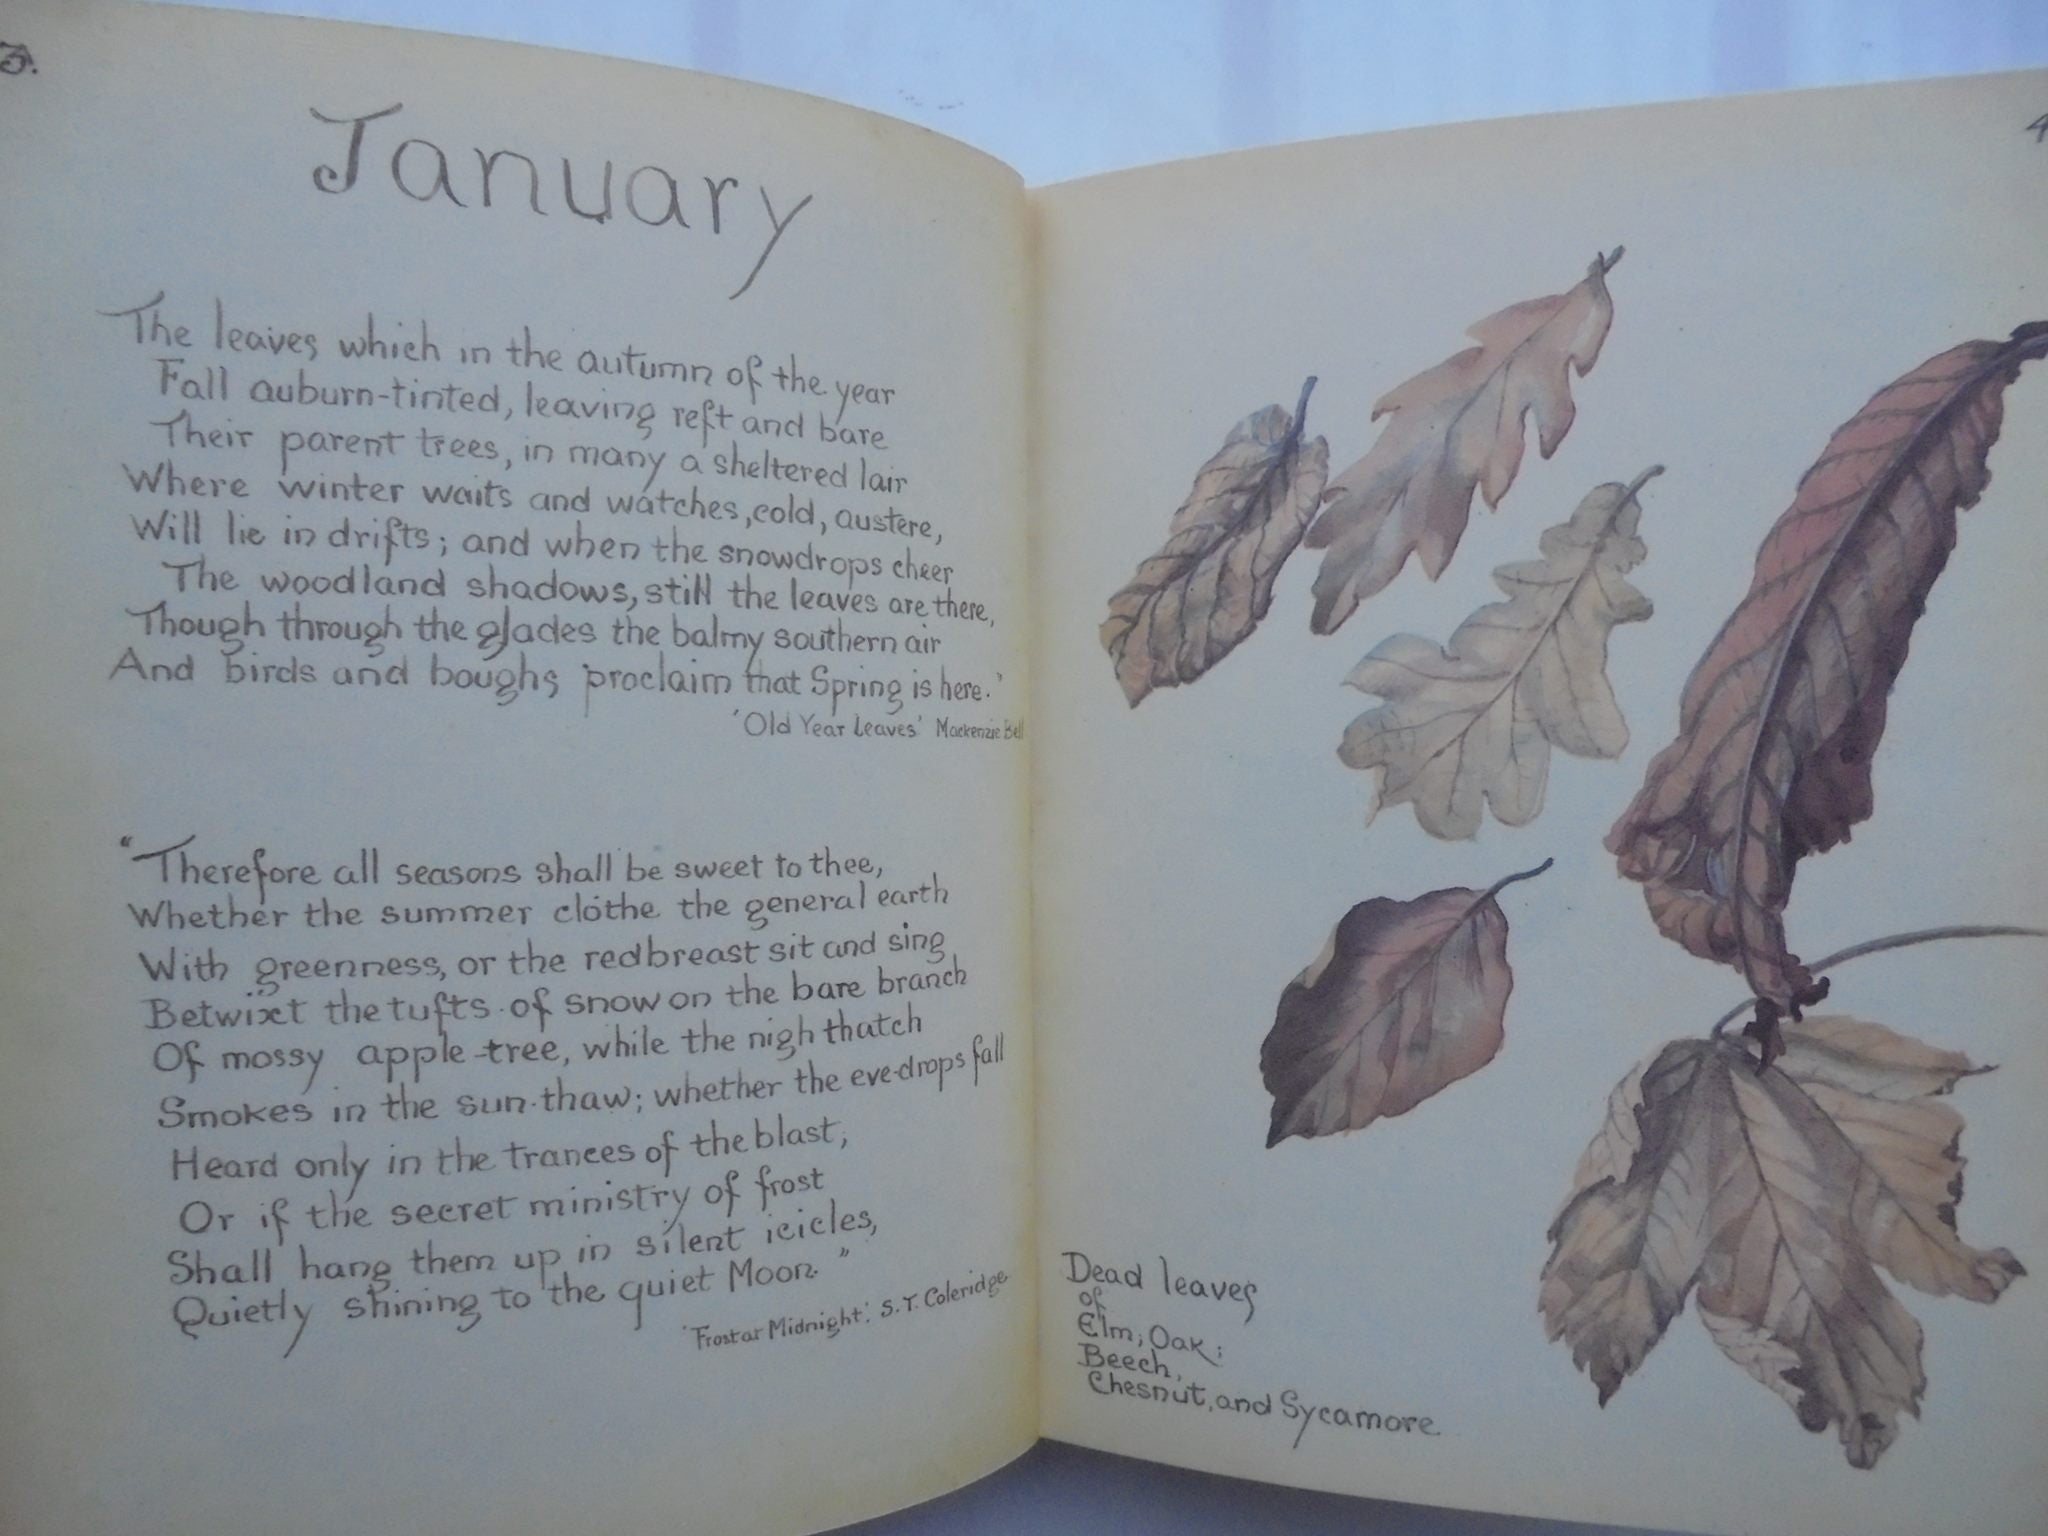 3.
January
The leaves which in the autumn of the year
Fall auburn-tinted, leaving reft and bare
Their parent trees, in many a sheltered lair
Where winter waits and watches, cold, austere,
Will lie in drifts; and when the snowdrops cheer
The woodland shadows, still the leaves are there,
Though through the glades the balmy southern air
And birds and boughs proclaim that Spring is here."
'Old Year Leaves' Mackenzie Bell
"Therefore all seasons shall be sweet to thee,
Whether the summer clothe the general earth
With greenness, or the redbreast sit and sing
Betwixt the tufts of snow on the bare branch
Of mossy apple-tree, while the nigh thatch
Smokes in the sun-thaw; whether the eve-drops fall
Heard only in the trances of the blast,
Or if the secret ministry of frost
Shall hang them up in silent icicles,
Quietly shining to the quiet Moon."
'Frost at Midnight'. S.T. Coleridge
4
Dead leaves
of
Elm; Oak;
Beech,
Chesnut, and Sycamore